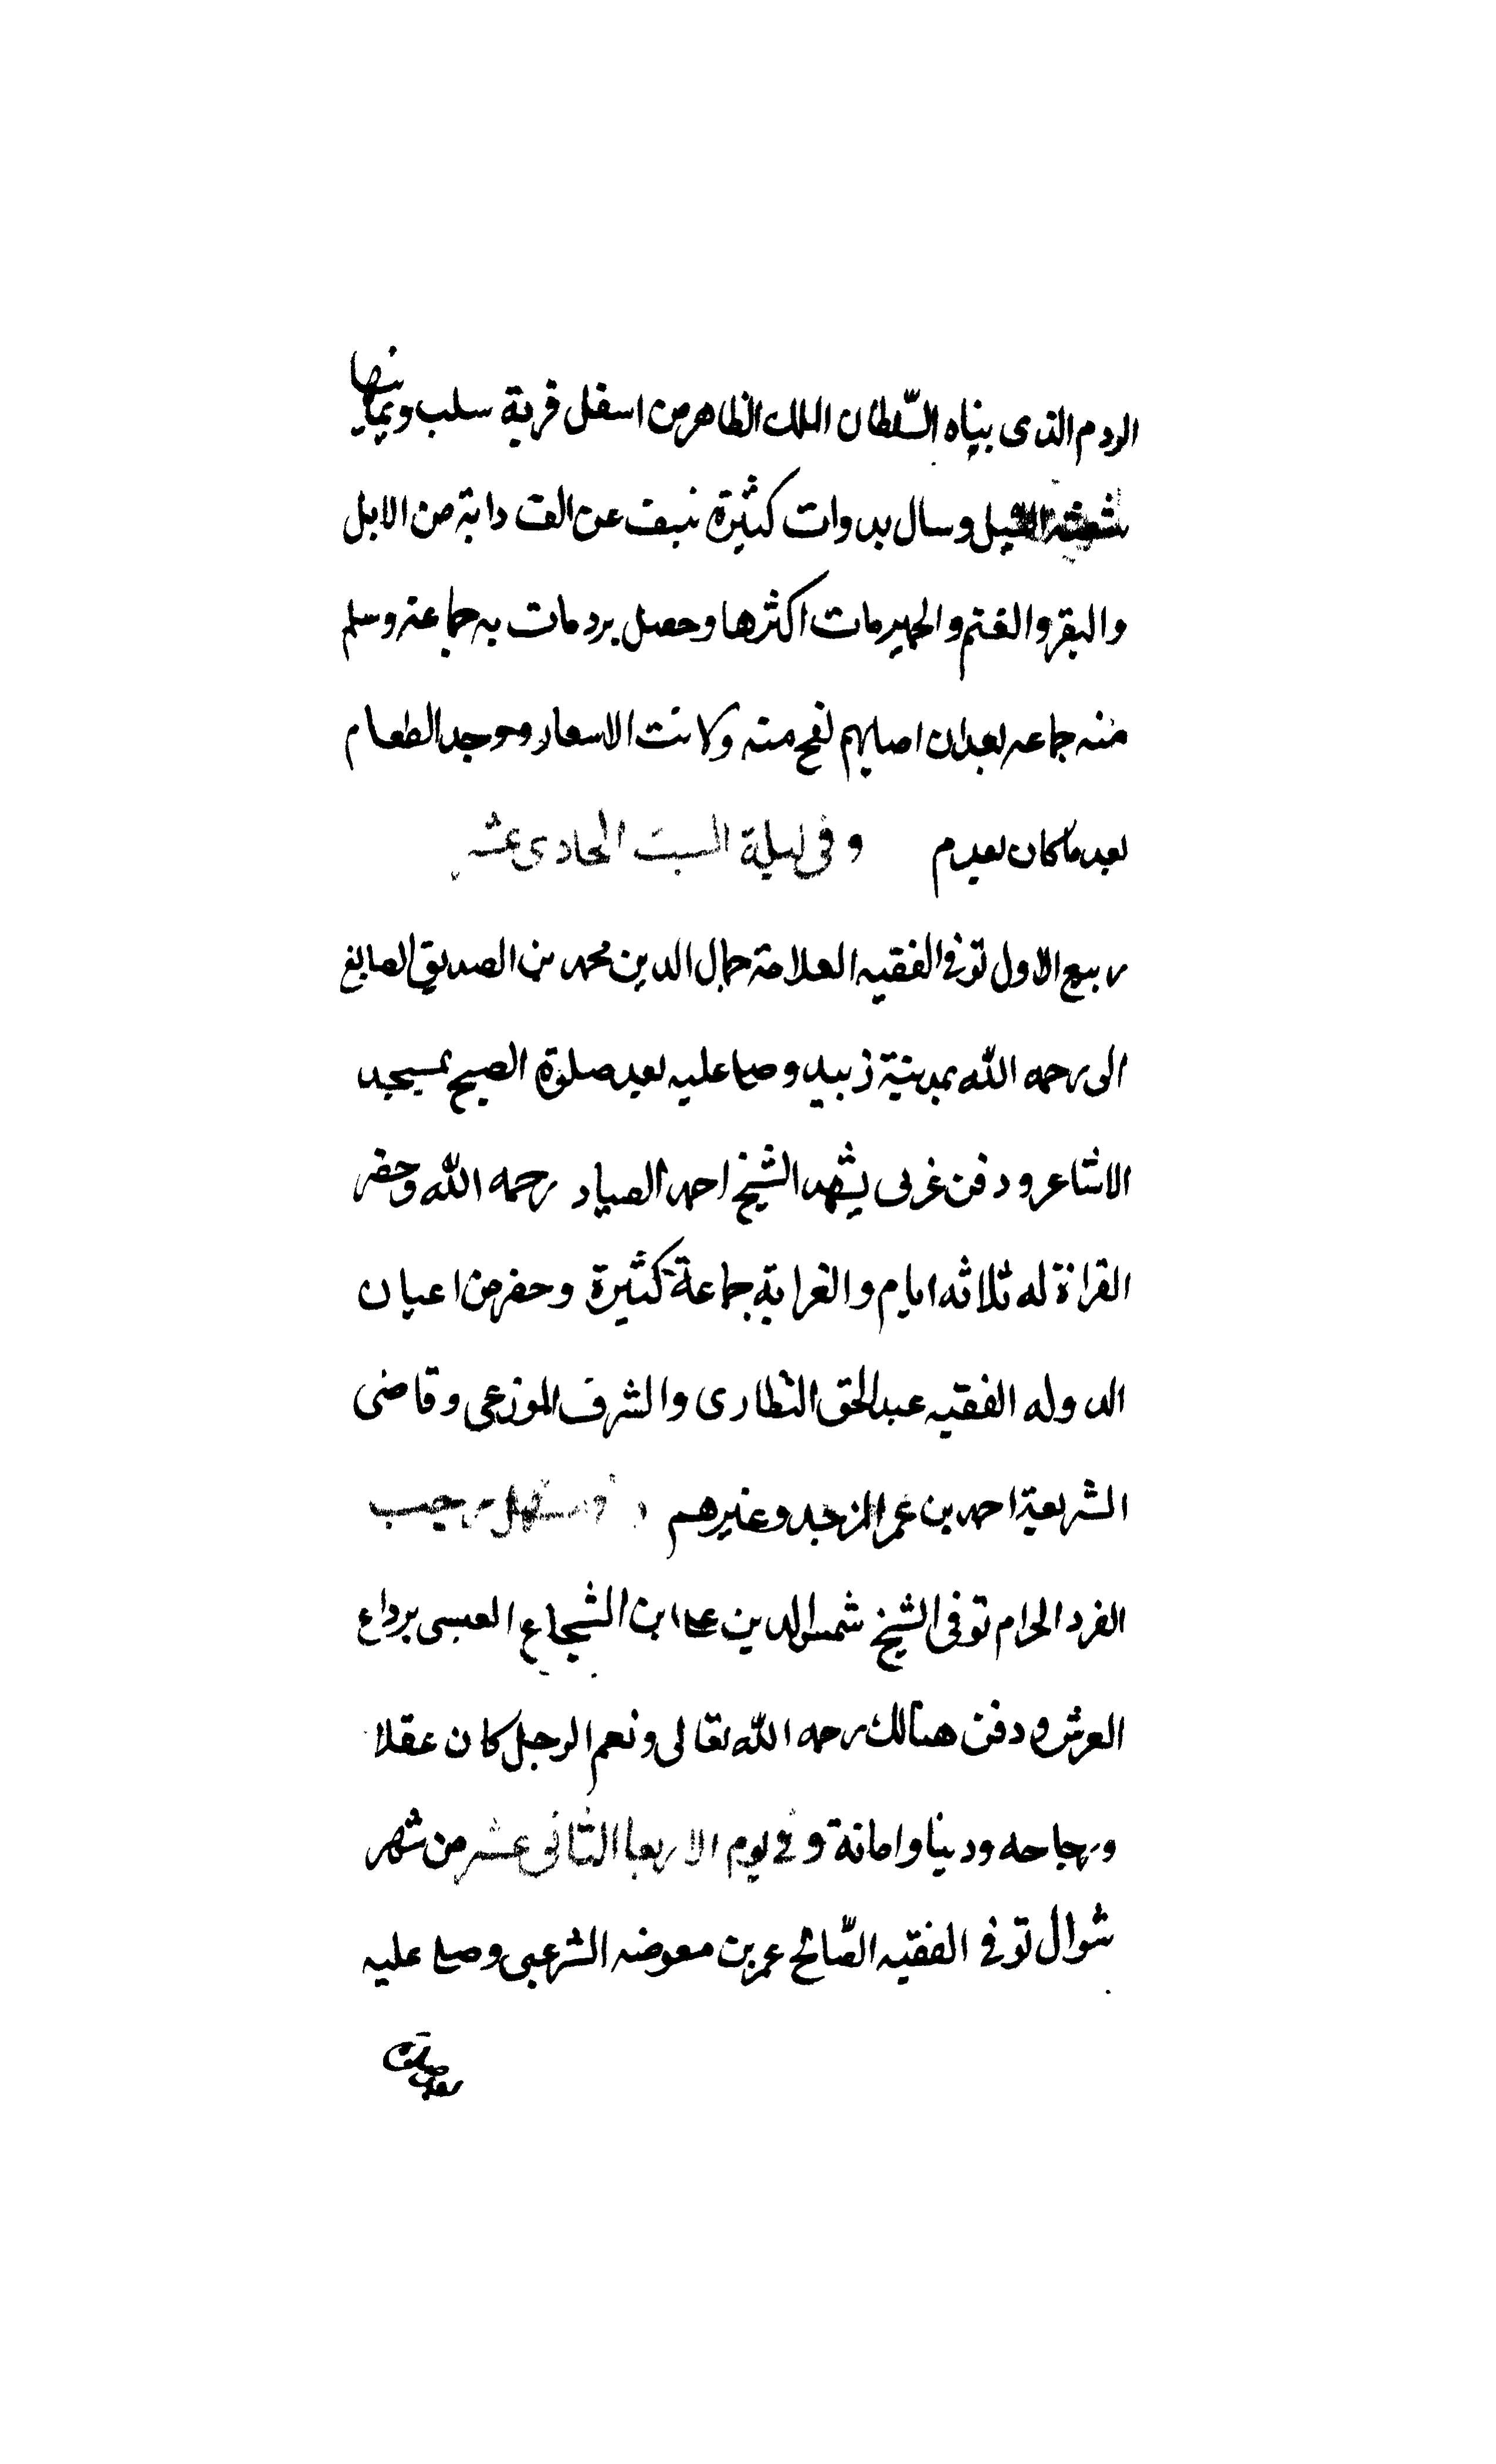 الردم الذى بيناه السّلطان الملك الظاهر من اسفل قرية سلب ويمانيها
السيل وسال بدوات كثيرة نيف عن الف دابة من الابل
والبقر والغنم والحمير مات اكثرها وحصل برد مات به جماعة وسلم
منه جماعه بعد ان اصابهم لفح منه وكانت الاسعار ووجد الطعام
بعد ما كان بعدم وفى ليلة السبت الحادى عشر
ربيع الاول توفى الفقيه العلامة جمال الدين محمد بن الصديق الصايغ
الى رحمه الله بمدينة زبيد وصلى عليه بعد صلوة الصبح بمسجد
الاشاعر ودفن غربى بشهد الشيخ احمد الصياد رحمه الله وحضر
القراة له ثلاثه ايام والغرابة جماعة كثيرة وحضر من اعيان
الدوله الفقيه عبد الحق النظارى والشرف الموزعى وقاضى
الشريعة احمد بن عمر المزجد وغيرهم وفى مستهل رجب
الفرد الحرام توفى الشيخ شمس الدين على ابن الشجاع العبسى برداع
العرش ودفن هنالك رحمه الله تعالى ونعم الرجل كان عقلا
ورجاحه ودينا وامانة وفى يوم الاربعا الثانى عشر من شهر
شوال توفى الفقيه الصّالح عمر بن معوضه الشرعبى وصلى عليه
بعد صلوة